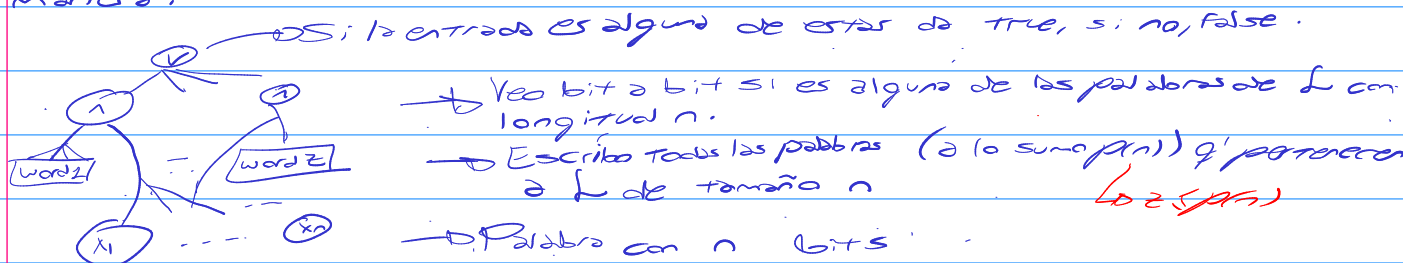 Si la entrada es alguna de estas da true, si no, false.
∨
∧
∧
Veo bit a bit si es alguna de las palabras de L con
longitud n.
word1
...
word z
Escribo todas las palabras (a lo sumo p(n)) q' pertenecen
a L de tamaño n
z ≤ p(n)
x1
....
xn
Palabra con n bits